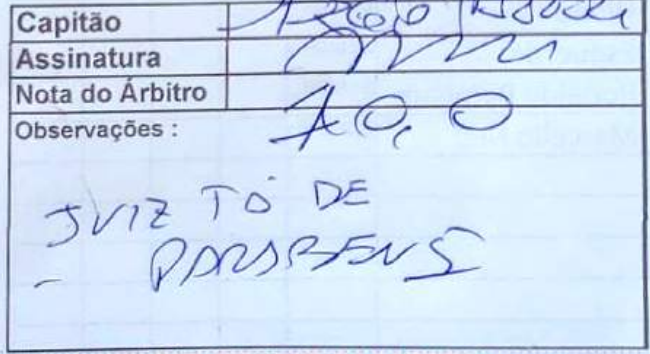 Capitão
Assinatura
Nota do Árbitro 10,0
Observações :
JUIZ TÓ DE
- PARABENS